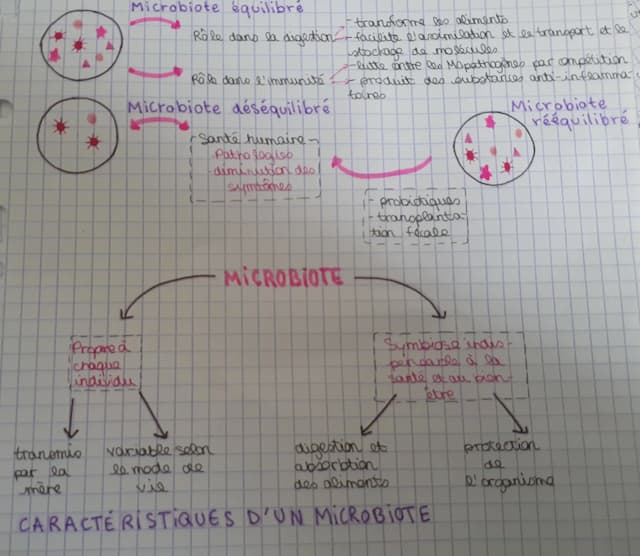 Microbiote équilibré
Rôle dans la digestion
- transforme les aliments
- facilite l'assimilation et le transport et le
stockage de molécules
Rôle dans l'immunité
- lutte contre les MO pathogènes par compétition
- produit des substances anti-inflamma-
toires
Microbiote déséquilibré
- Santé humaine -
Pathologies
- diminution des
symptômes
Microbiote
rééquilibré
- probiotiques
- transplanta-
tion fécale
MICROBIOTE
Propre à
chaque
individu
Symbiose indis-
pensable à la
santé et au bien-
être
transmis
par la
mère
variable selon
le mode de
vie
digestion et
absorbtion
des aliments
protection
de
l'organisme
CARACTÉRISTIQUES D'UN MICROBIOTE